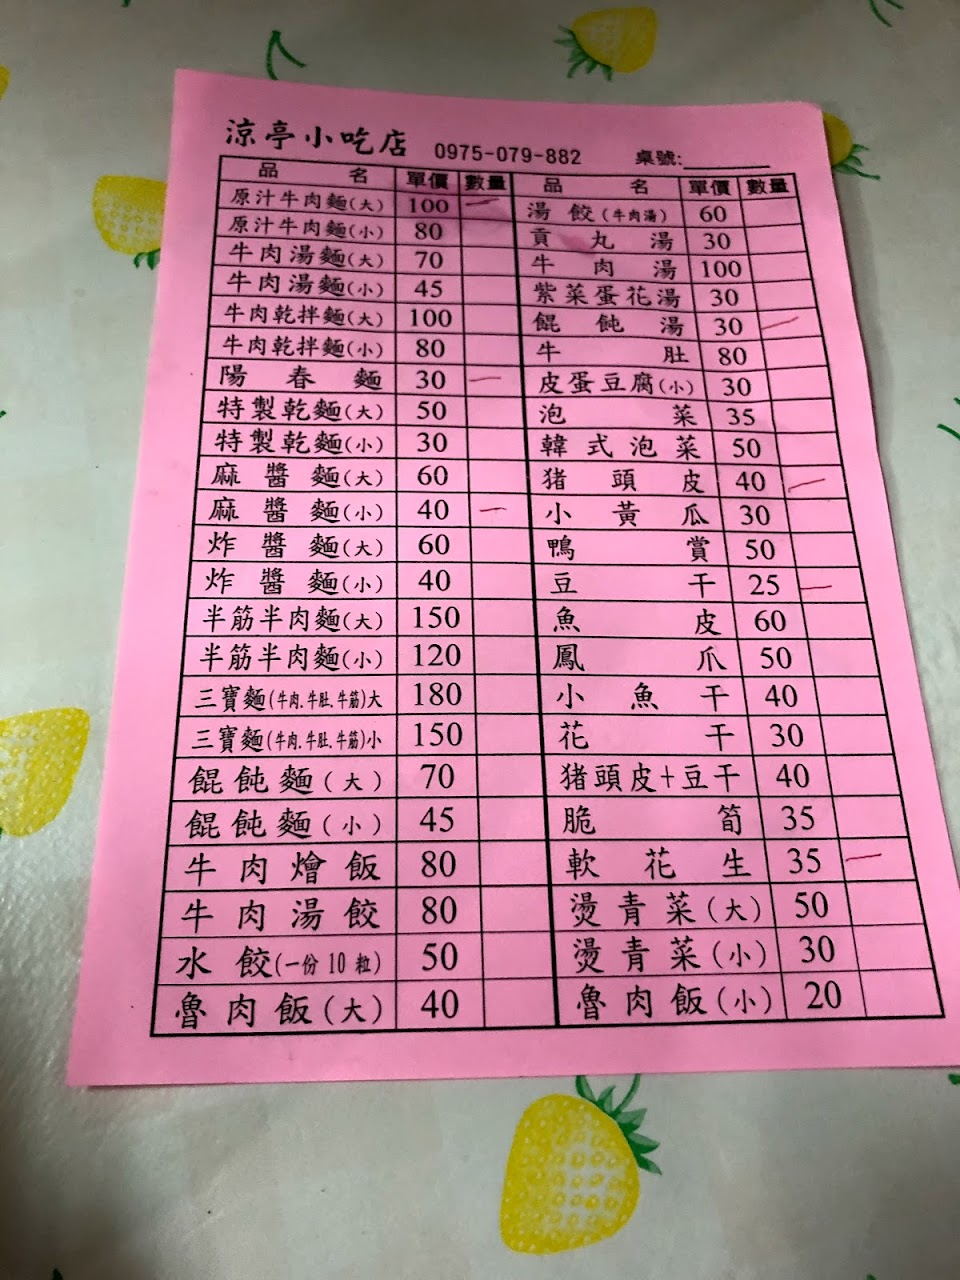 涼亭小吃店 0975-079-882 桌號:
品名 單價 數量 品名 單價 數量
原汁牛肉麵(大) 100 一 湯餃(牛肉湯) 60
原汁牛肉麵(小) 80 貢丸湯 30
牛肉湯麵(大) 70 牛肉湯 100
牛肉湯麵(小) 45 紫菜蛋花湯 30
牛肉乾拌麵(大) 100 餛飩湯 30 一
牛肉乾拌麵(小) 80 牛肚 80
陽春麵 30 一 皮蛋豆腐(小) 30
特製乾麵(大) 50 泡菜 35
特製乾麵(小) 30 韓式泡菜 50
麻醬麵(大) 60 猪頭皮 40 一
麻醬麵(小) 40 一 小黃瓜 30
炸醬麵(大) 60 鴨賞 50
炸醬麵(小) 40 豆干 25 一
半筋半肉麵(大) 150 魚皮 60
半筋半肉麵(小) 120 鳳爪 50
三寶麵(牛肉.牛肚.牛筋)大 180 小魚干 40
三寶麵(牛肉.牛肚.牛筋)小 150 花干 30
餛飩麵(大) 70 猪頭皮+豆干 40
餛飩麵(小) 45 脆筍 35
牛肉燴飯 80 軟花生 35 一
牛肉湯餃 80 燙青菜(大) 50
水餃(一份10粒) 50 燙青菜(小) 30
魯肉飯(大) 40 魯肉飯(小) 20